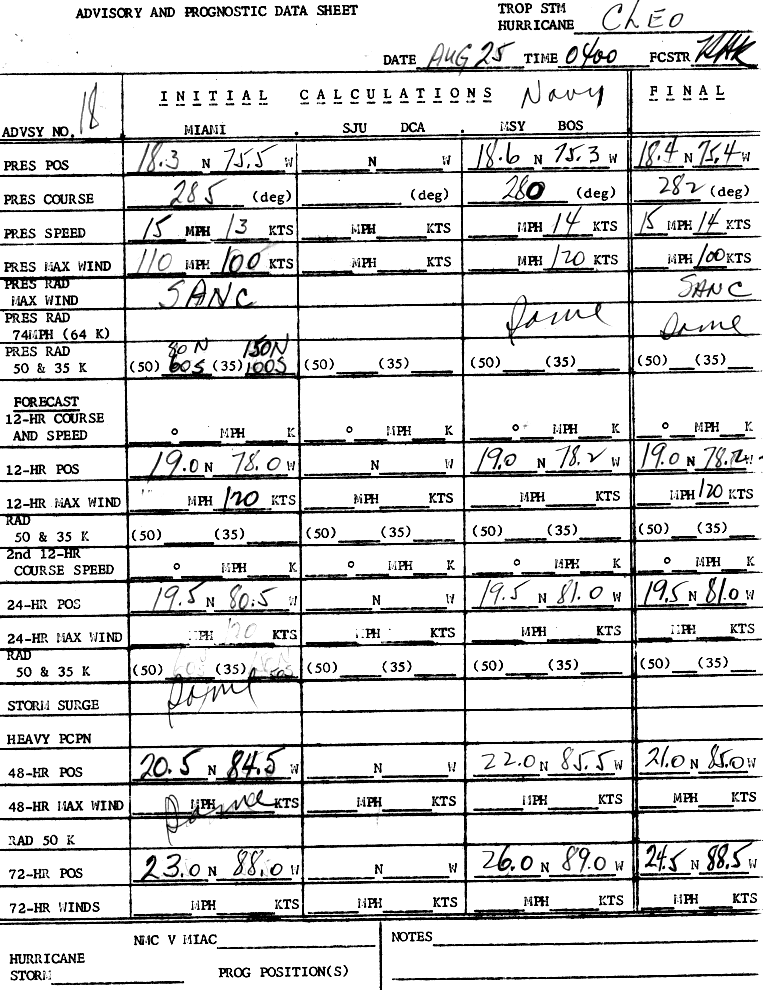 ADVISORY AND PROGNOSTIC DATA SHEET TROP STM
HURRICANE CLEO
DATE AUG 25 TIME 0400 FCSTR
INITIAL CALCULATIONS Navy FINAL
ADVSY NO. 18 MIAMI . SJU DCA . MSY BOS
PRES POS 18.3 N 75.5 W N W 18.6 N 75.3 W 18.4 N 75.4 W
PRES COURSE 285 (deg) (deg) 280 (deg) 282 (deg)
PRES SPEED 15 MPH 13 KTS MPH KTS MPH 14 KTS 15 MPH 14 KTS
PRES MAX WIND 110 MPH 100 KTS MPH KTS MPH 120 KTS MPH 100 KTS
PRES RAD
MAX WIND SANC SANC
PRES RAD
74MPH (64 K) Same Same
PRES RAD 80N 150N
50 & 35 K (50) 60S (35) 100S (50) (35) (50) (35) (50) (35)
FORECAST
12-HR COURSE
AND SPEED ° MPH K ° MPH K ° MPH K ° MPH K
12-HR POS 19.0 N 78.0 W N W 19.0 N 78.2 W 19.0 N 78.2 W
12-HR MAX WIND MPH 120 KTS MPH KTS MPH KTS MPH 120 KTS
RAD
50 & 35 K (50) (35) (50) (35) (50) (35) (50) (35)
2nd 12-HR
COURSE SPEED ° MPH K ° MPH K ° MPH K ° MPH K
24-HR POS 19.5 N 80.5 W N W 19.5 N 81.0 W 19.5 N 81.0 W
24-HR MAX WIND MPH 120 KTS MPH KTS MPH KTS MPH KTS
RAD
50 & 35 K (50) (35) (50) (35) (50) (35) (50) (35)
STORM SURGE Same
HEAVY PCPN
48-HR POS 20.5 N 84.5 W N W 22.0 N 85.5 W 21.0 N 85.0 W
48-HR MAX WIND Same MPH KTS MPH KTS MPH KTS MPH KTS
RAD 50 K
72-HR POS 23.0 N 88.0 W N W 26.0 N 89.0 W 24.5 N 88.5 W
72-HR WINDS MPH KTS MPH KTS MPH KTS MPH KTS
NMC V MIAC NOTES
HURRICANE
STORM PROG POSITION(S)